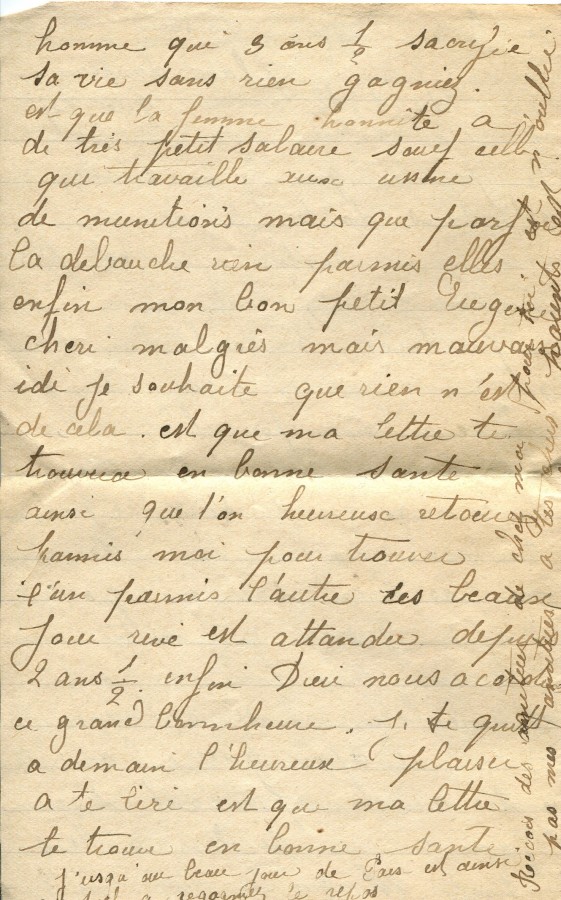 homme qui 3 ans 1/2 sacrifie
sa vie sans rien gagniez.
est que la femme honnite a
de trés petit salaire souf celle
qui travaille aux usine
de munitions mais que parfois
la debauche rien parmis elles
enfin mon bon petit Eugene
cheri malgrés mais mauvais
idé je souhaite que rien n'est
de cela. est que ma lettre te
trouvera en bonne santé
ainsi que l'on heureuse retour
parmis moi pour trouver
l'un parmis l'autre ces beaux
jour revé est attandu depuis
2 ans 1/2. enfin Dieu nous acorde
ce grand bonnheure. Je te quitte
a demain l'heureux plaisir
a te liré est que ma lettre
te trouve en bonne santé
j'usqu'au beau jour de Paix est ainsi
le repos
Recois des de chez moi pour toi est n'oublie
pas mes amitiés a tes chers parents